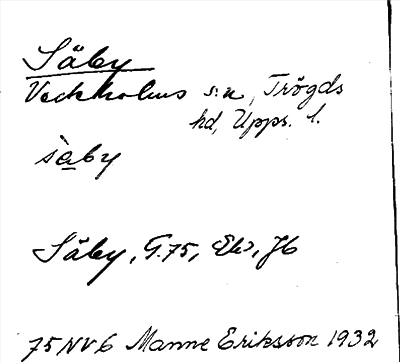 Säby
Veckholms sn, Trögds
hd, Upps. l.
sàby
Säby, G.75, Ek, J6
75NV6 Manne Eriksson 1932